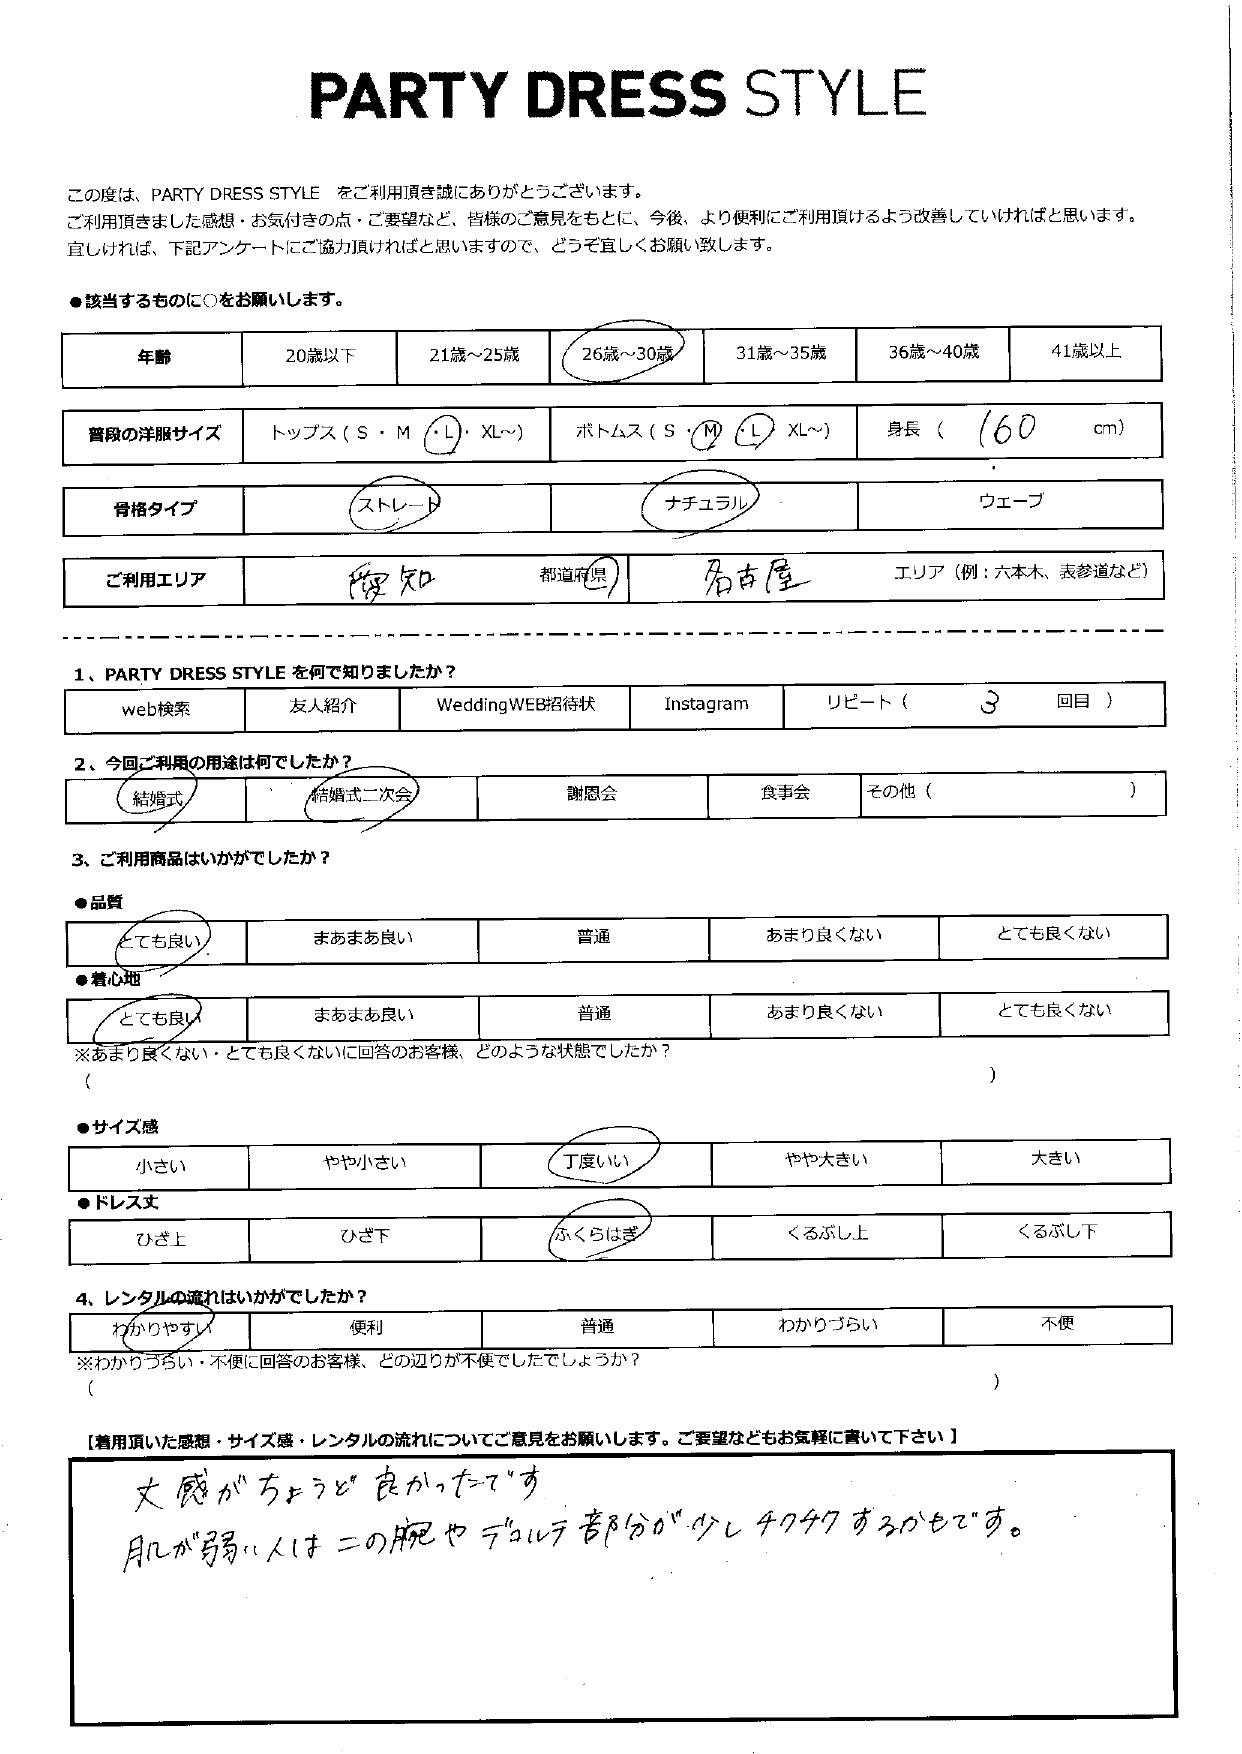 PARTY DRESS STYLE
この度は、PARTY DRESS STYLE をご利用頂き誠にありがとうございます。
ご利用頂きました感想・お気付きの点・ご要望など、皆様のご意見をもとに、今後、より便利にご利用頂けるよう改善していければと思います。
宜しければ、下記アンケートにご協力頂ければと思いますので、どうぞ宜しくお願い致します。
●該当するものに○をお願いします。
年齢 20歳以下 21歳～25歳 26歳～30歳 31歳～35歳 36歳～40歳 41歳以上
普段の洋服サイズ トップス（ S ・ M ・L・ XL～） ボトムス（ S ・M ・L XL～） 身長（ 160 cm）
骨格タイプ ストレート ナチュラル ウェーブ
ご利用エリア 愛知 都道府県 名古屋 エリア（例：六本木、表参道など）
1、PARTY DRESS STYLE を何で知りましたか？
web検索 友人紹介 WeddingWEB招待状 Instagram リピート（ 3 回目 ）
2、今回ご利用の用途は何でしたか？
結婚式 結婚式二次会 謝恩会 食事会 その他（ ）
3、ご利用商品はいかがでしたか？
●品質
とても良い まあまあ良い 普通 あまり良くない とても良くない
●着心地
とても良い まあまあ良い 普通 あまり良くない とても良くない
※あまり良くない・とても良くないに回答のお客様、どのような状態でしたか？
（ ）
●サイズ感
小さい やや小さい 丁度いい やや大きい 大きい
●ドレス丈
ひざ上 ひざ下 ふくらはぎ くるぶし上 くるぶし下
4、レンタルの流れはいかがでしたか？
わかりやすい 便利 普通 わかりづらい 不便
※わかりづらい・不便に回答のお客様、どの辺りが不便でしたでしょうか？
（ ）
【着用頂いた感想・サイズ感・レンタルの流れについてご意見をお願いします。ご要望などもお気軽に書いて下さい 】
丈感がちょうど良かったです
肌が弱い人は二の腕やデコルテ部分が少しチクチクするかもです。